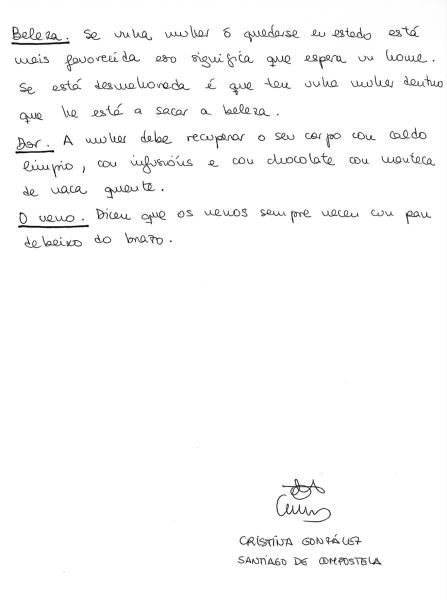 Beleza. Se unha muller ó quedarse en estado está
mais favorecida eso significa que espera un home.
Se está desmellorada é que ten unha muller dentro
que lle está a sacar a beleza.
Dor. A muller debe recuperar o seu corpo con caldo
limpio, con infusións e con chocolate con manteca
de vaca quente.
O neno. Dicen que os nenos sempre nacen cun pan
debeixo do brazo.
CRISTINA GONZÁLEZ
SANTIAGO DE COMPOSTELA